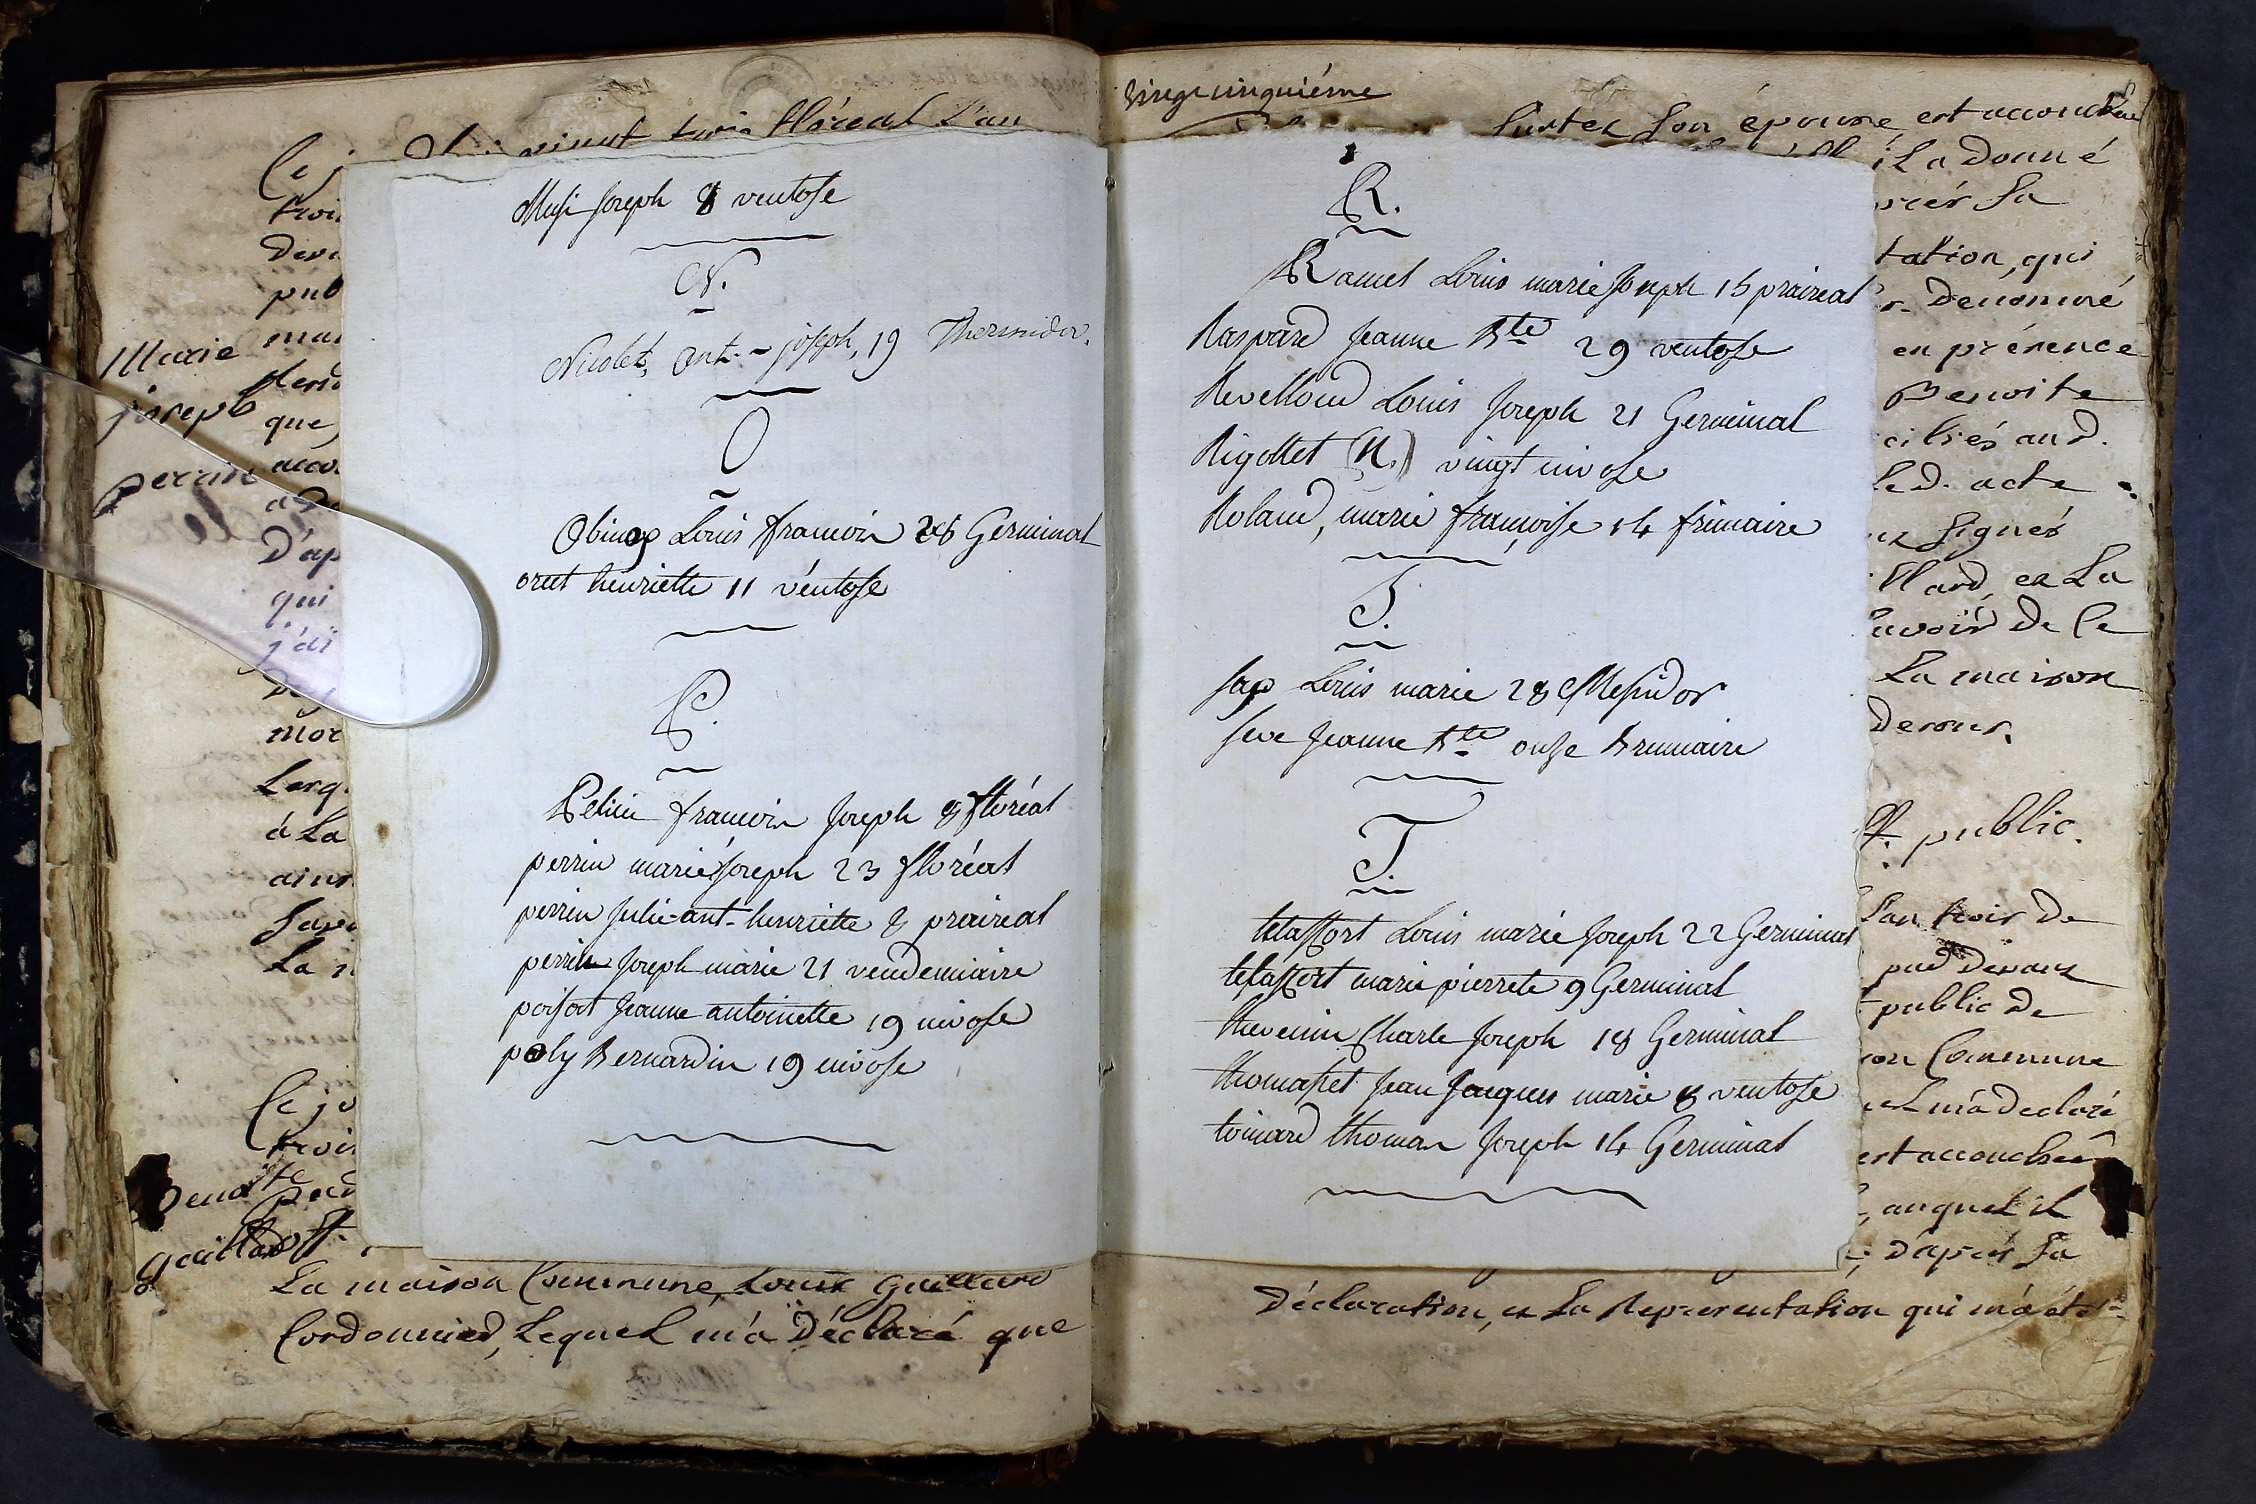 trois floréal L'an
Ce j
troi
Deva
pub
Marie mai
joseph que,
perrin acco
a Do
D'ap
qui
j'ai
mor
Lerq
à La
ainsi
Savo
La
Ce jo
troi
Benoite
gaillard
La maison Commune, Louis Gaillard
Cordonnier, Lequel m'a Déclaré que
Musi Joseph 8 ventose
N.
Nicolet, Ant.- joseph, 19 Thermidor.
O
Louis francois Germinal
henriette 11 ventose
P.
francois Joseph 8 floréal
perrin marie Joseph 23 floréal
perrin Julie-ant-henriette 8 praireal
perrin Joseph marie 21 vendemiaire
Jeanne antoinette 19 nivose
poly Bernardin 19 nivose
vingt cinquiéme
son épouse, est accouchée
iLa Donné
après Sa
tation, qui
Denommé
en présence
Benoite
ciliés aud.
led. acte
Signés
llard, et La
avoir De Ce
La maison
Dessus.
public.
L'an trois De
pard Devant
public De
son Commune
uel m'a declaré
est accouchée
auquel il
D'après Sa
Déclaration, et La Représentation qui m'a été
R.
Ramel Louis marie Joseph 15 praireal
Raspard Jeanne Bte 29 ventose
Revelloud Louis Joseph 21 Germinal
Rigottet (N.) vingt nivose
Roland, marie françoise 14 frimaire
S.
Sap Louis marie 28 Messidor
Seve Jeanne Bte onze Brumaire
T.
Louis marie Joseph 22 Germinal
marie pierrete 9 Germinal
thevenin Charle Joseph 18 Germinal
thomasset Jean Jacques marie 8 ventose
toinard thomas Joseph 14 Germinal